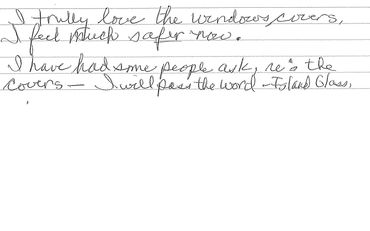 I trully love the windows covers,
I feel much safer now.
I have had some people ask, re's the
covers — I will pass the word - Island Glass,